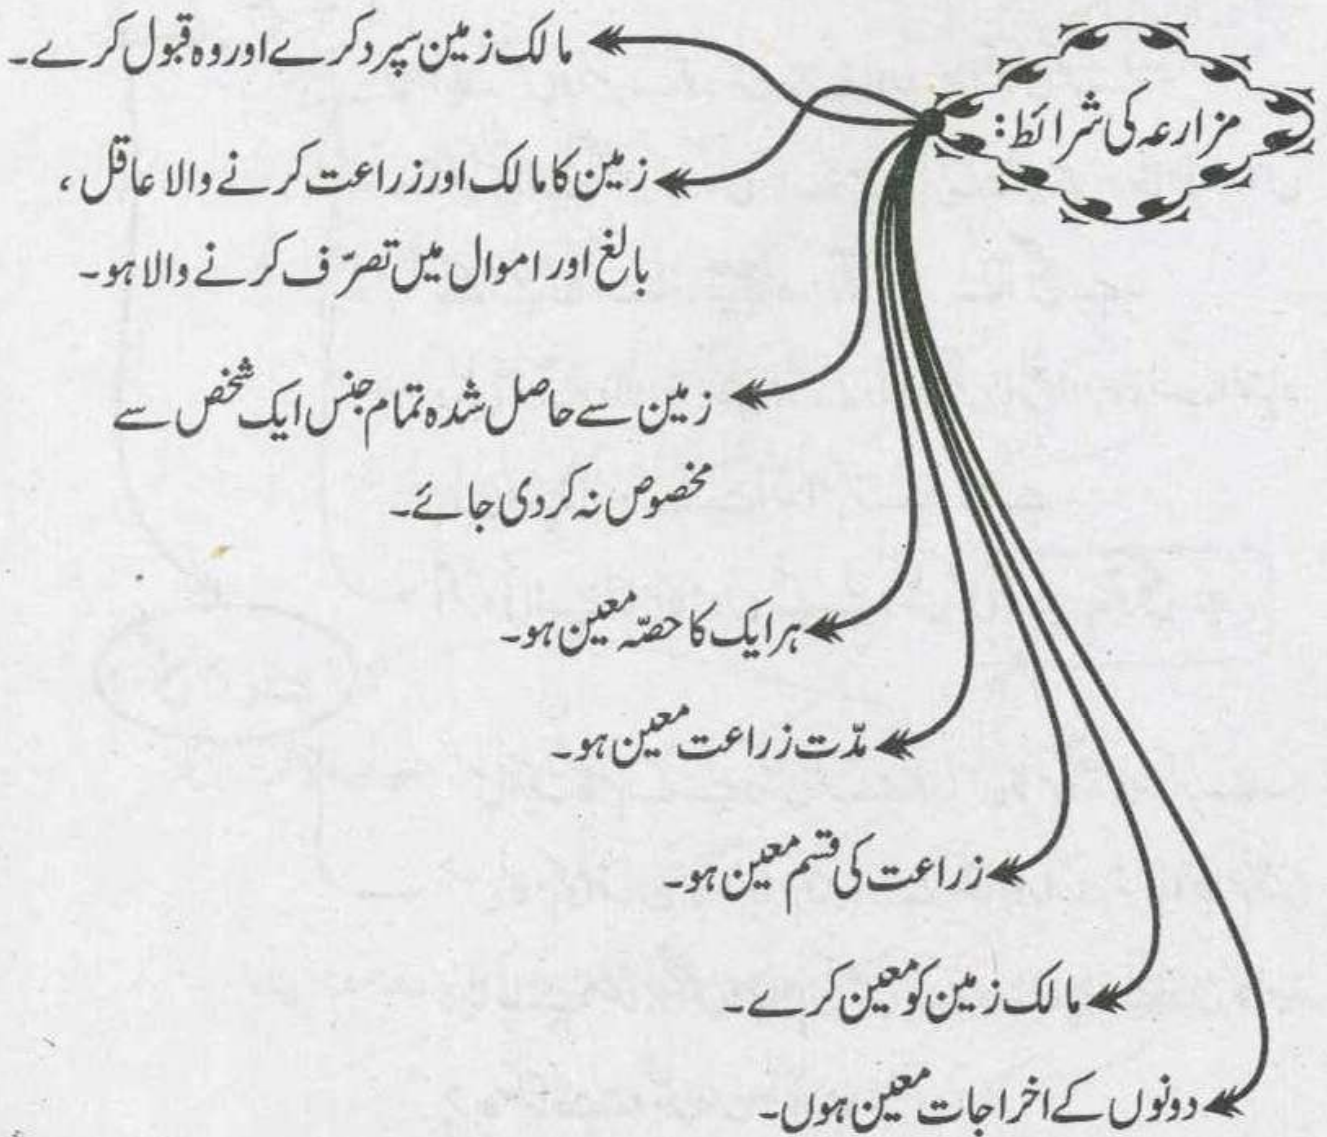 مزارعہ کی شرائط:
مالک زمین سپرد کرے اور وہ قبول کرے۔
زمین کا مالک اور زراعت کرنے والا عاقل،
بالغ اور اموال میں تصرّف کرنے والا ہو۔
زمین سے حاصل شدہ تمام جنس ایک شخص سے
مخصوص نہ کر دی جائے۔
ہر ایک کا حصّہ معین ہو۔
مدّت زراعت معین ہو۔
زراعت کی قسم معین ہو۔
مالک زمین کو معین کرے۔
دونوں کے اخراجات معین ہوں۔